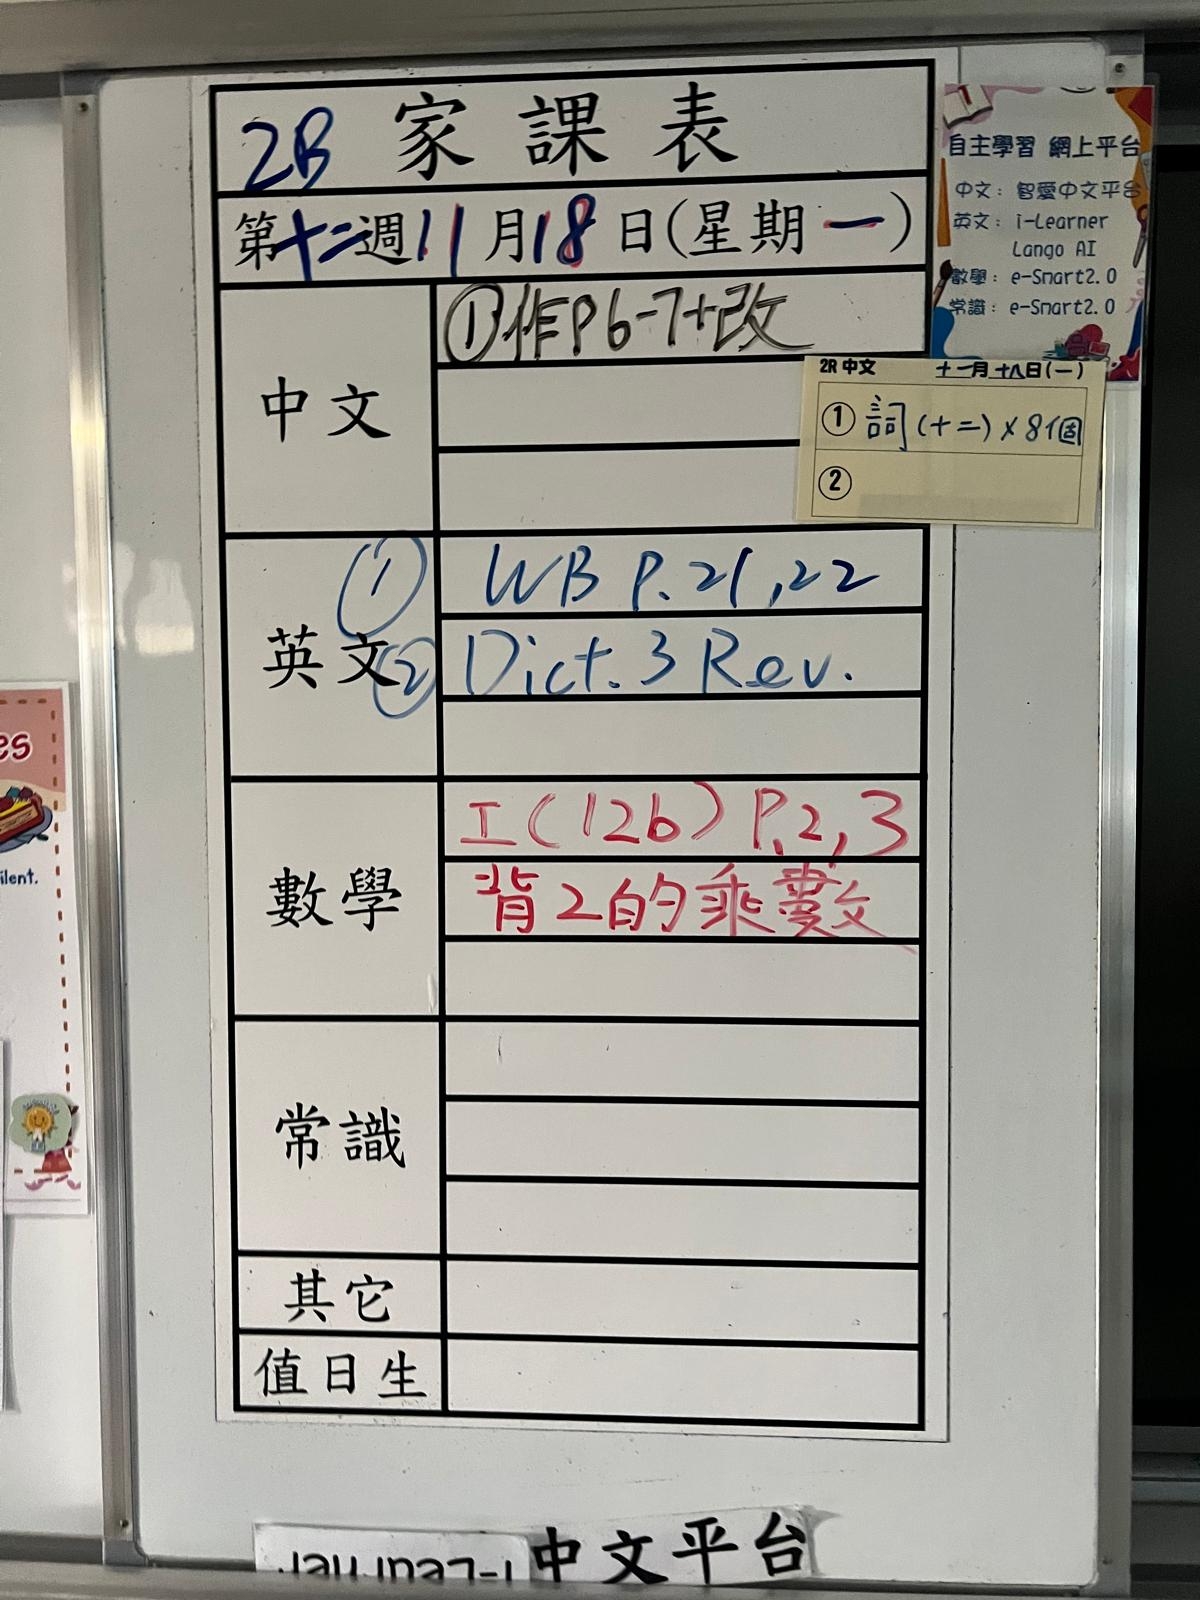 2B 家課表
第十二週 11月18日(星期一)
中文
①作P6-7+改
英文
① WB P.21,22
② Dict. 3 Rev.
數學
工(12b) P.2,3
背2的乘數
常識
其它
值日生
自主學習 網上平台
中文：智愛中文平台
英文：i-Learner
Lango AI
數學：e-Smart2.0
常識：e-Smart2.0
2R 中文 十一月十八日(一)
① 詞(十二)×8個
②
es
ilent.
i-Learner
中文平台